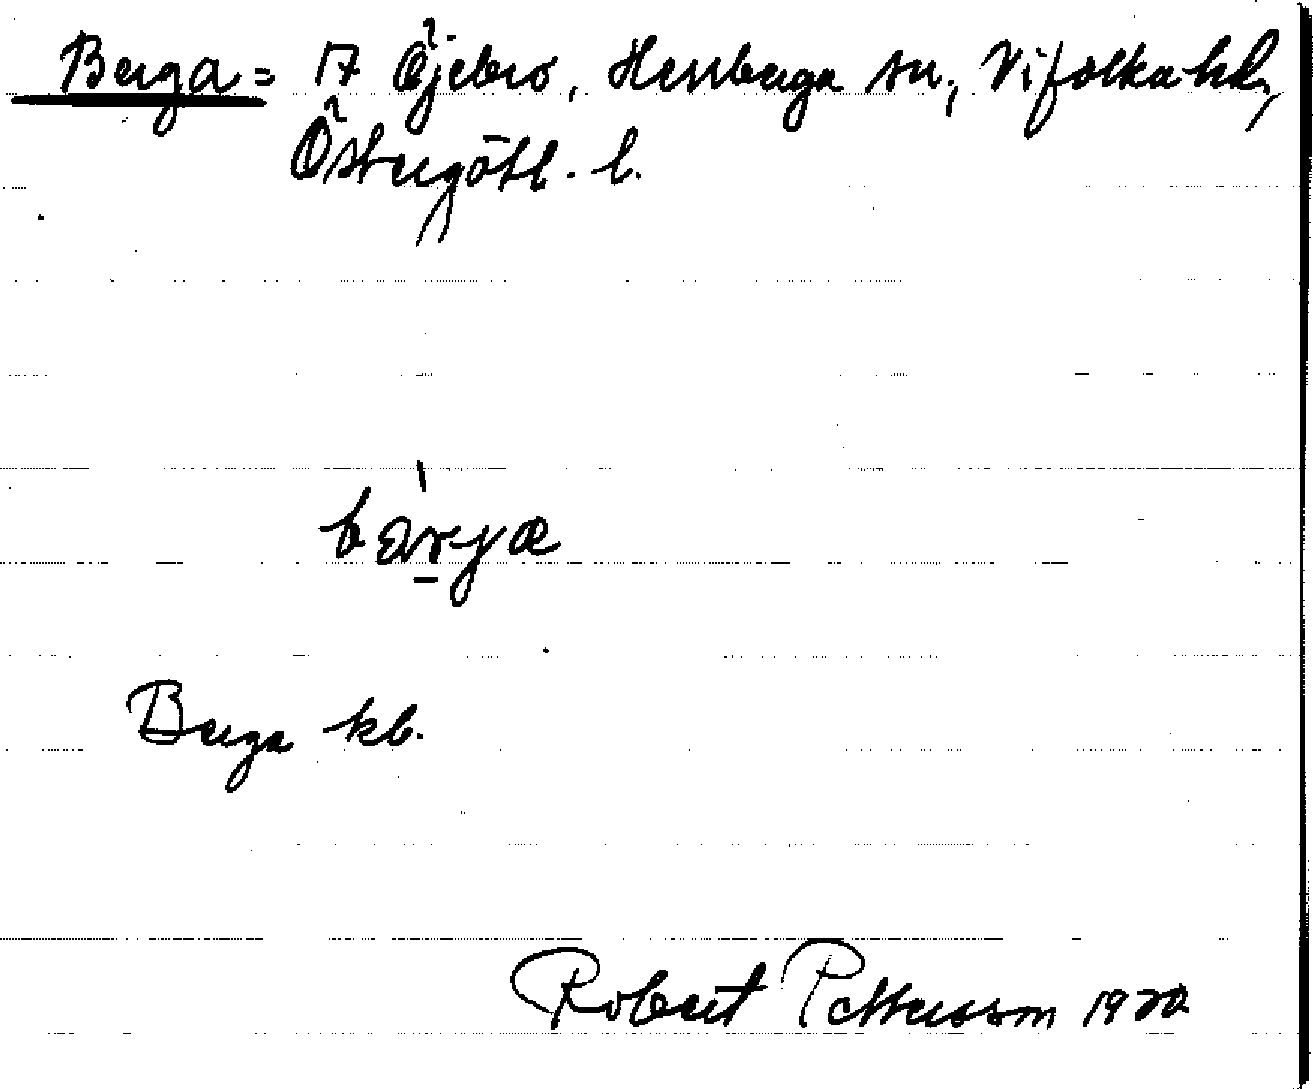 Berga = 17 Öjebro, Herrberga sn, Vifolka hd,
Östergötl. l.
bærja
Berga kb.
Robert Pettersson 1922